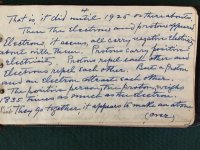 4
That is, it did until 1925 or thereabouts
Then the Electrons and protons appear
Electrons it seems, all carry negative electricity
about with them. Protons carry positive
electricity. Protons repel each other and
electrons repel each other. But a Proton
and an Electron attract each other.
The positive person, the proton, weighs
1835 times as much as the electron.
they go together it appears to make an atom
(over)